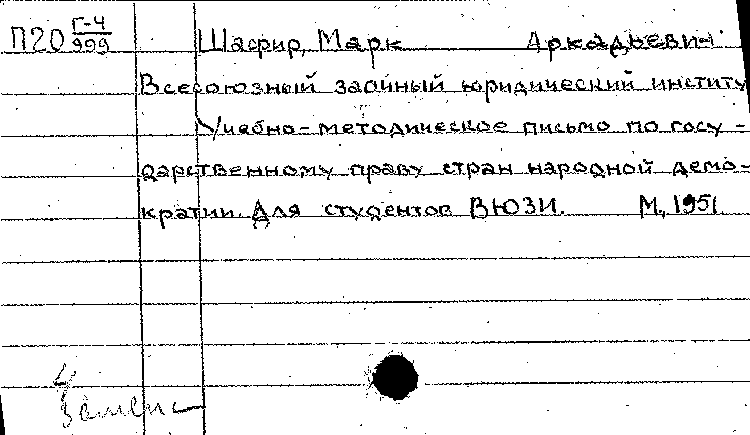 П20 Г-4/999 Шафир, Марк Аркадьевич
Всесоюзный заочный юридический институ
Учебно-методическое письмо по госу-
дарственному праву стран народной демо-
кратии. Для студентов ВЮЗИ. М., 1951.